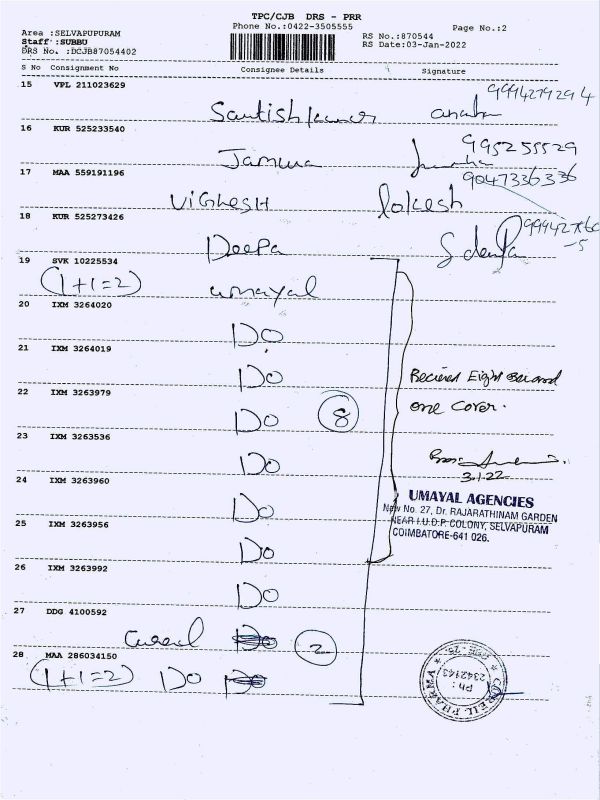 TPC/CJB DRS - PRR
Area :SELVAPUPURAM
Phone No.:0422-3505555
Page No.:2
Staff :SUBBU
RS No.:870544
DRS No. :DCJB87054402
RS Date:03-Jan-2022
S No Consignment No Consignee Details Signature
15 VPL 211023629
Santish kumar 9994279294
16 KUR 525233540
Jamuna 995255529
17 MAA 559191196
9047336336
VIGHESH lokesh
18 KUR 525273426
Deepa
19 SVK 10225534
(1+1=2) umayal
20 IXM 3264020
Do
21 IXM 3264019
Do Recieved Eight
22 IXM 3263979
one cover.
Do 8
23 IXM 3263536
Do
3.1.22
24 IXM 3263960
UMAYAL AGENCIES
New No. 27, Dr. RAJARATHINAM GARDEN
Do
NEAR I.U.D.P. COLONY, SELVAPURAM
25 IXM 3263956
COIMBATORE-641 026.
Do
26 IXM 3263992
Do
27 DDG 4100592
Do 2
28 MAA 286034150
(1+1=2) Do Do
PHARMA
Ph : 2342143